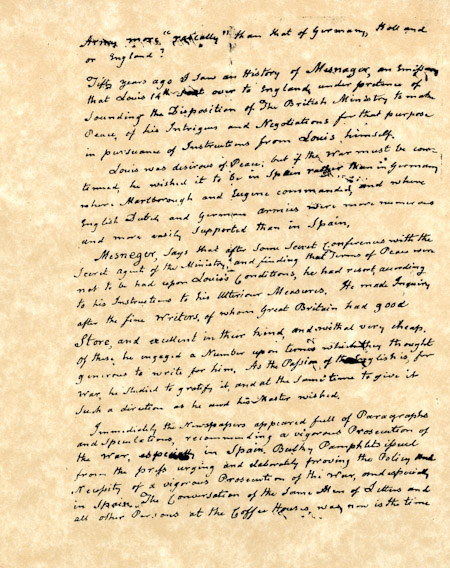 Army more "rascally" than that of Germany, Holland
or England?
Fifty years ago I saw an History of Mesnager, an Emissary
that Louis 14th sent over to England, under pretence of
Sounding the Disposition of The British Ministry to make
Peace, of his Intrigues and Negotiations for that purpose
in pursuance of Instructions from Louis himself.
Louis was desirous of Peace; but if the War must be con-
tinued, he wished it to be in Spain rather than in Germany
where Marlborough and Eugene commanded, and where
English Dutch and German armies were more numerous
and more easily supported than in Spain,
Mesnager, says that after Some Secret Conferences with the
Secret agent of the Ministry, and finding that Terms of Peace were
not to be had upon Louis's Conditions, he had resort, according
to his Instructions to his Ulteriour Measures. He made Inquiry
after the fine Writers, of whom Great Britain had good
Store, and excellent in their kind, and withal very cheap.
Of these he engaged a Number upon terms which they thought
generous to write for him, As the Passion of the English is, for
War, he studied to gratify it, and at the Same time to give it
Such a direction as he and his Master wished.
Immediately the Newspapers appeared full of Paragraphs
and Speculations, recommending a vigorous Prosecution of
the War, in Spain, Bushy Pamphlets issued
from the press urging and elaborately proving the Policy and
Necessity of a vigorous Prosecution of the War, and especially
in Spain. The Conversation of the Same Men of Letters and
all other Persons at the Coffee Houses, was, now is the time